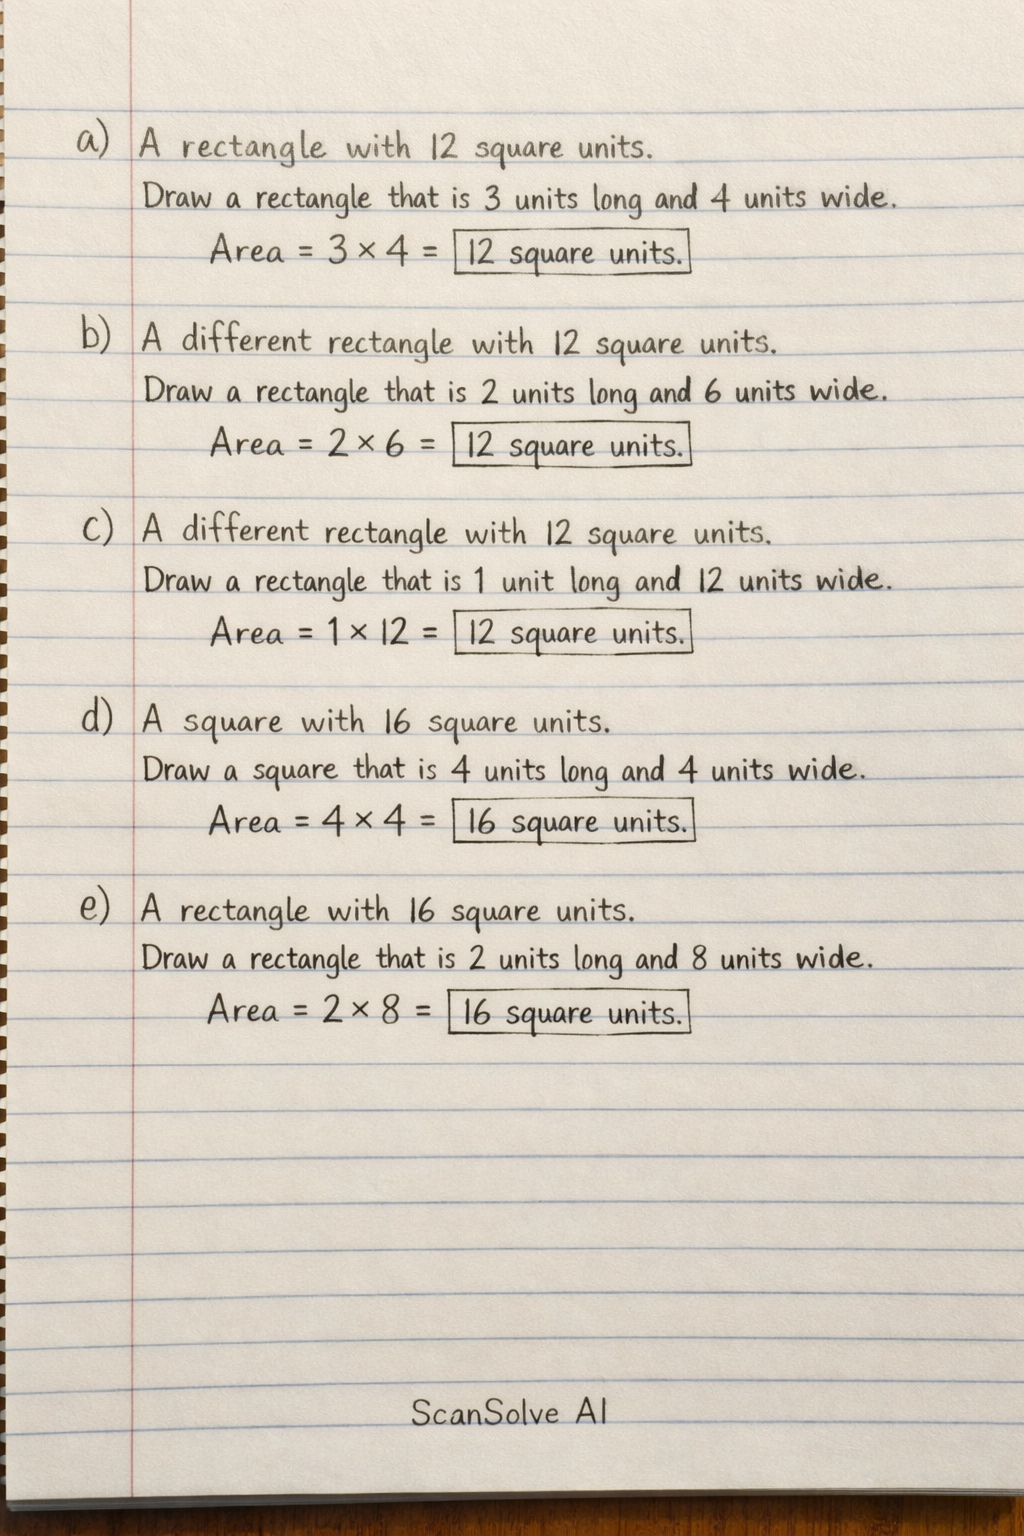 a) A rectangle with 12 square units.
Draw a rectangle that is 3 units long and 4 units wide.
Area = 3 × 4 = 12 square units.
b) A different rectangle with 12 square units.
Draw a rectangle that is 2 units long and 6 units wide.
Area = 2 × 6 = 12 square units.
c) A different rectangle with 12 square units.
Draw a rectangle that is 1 unit long and 12 units wide.
Area = 1 × 12 = 12 square units.
d) A square with 16 square units.
Draw a square that is 4 units long and 4 units wide.
Area = 4 × 4 = 16 square units.
e) A rectangle with 16 square units.
Draw a rectangle that is 2 units long and 8 units wide.
Area = 2 × 8 = 16 square units.
ScanSolve AI